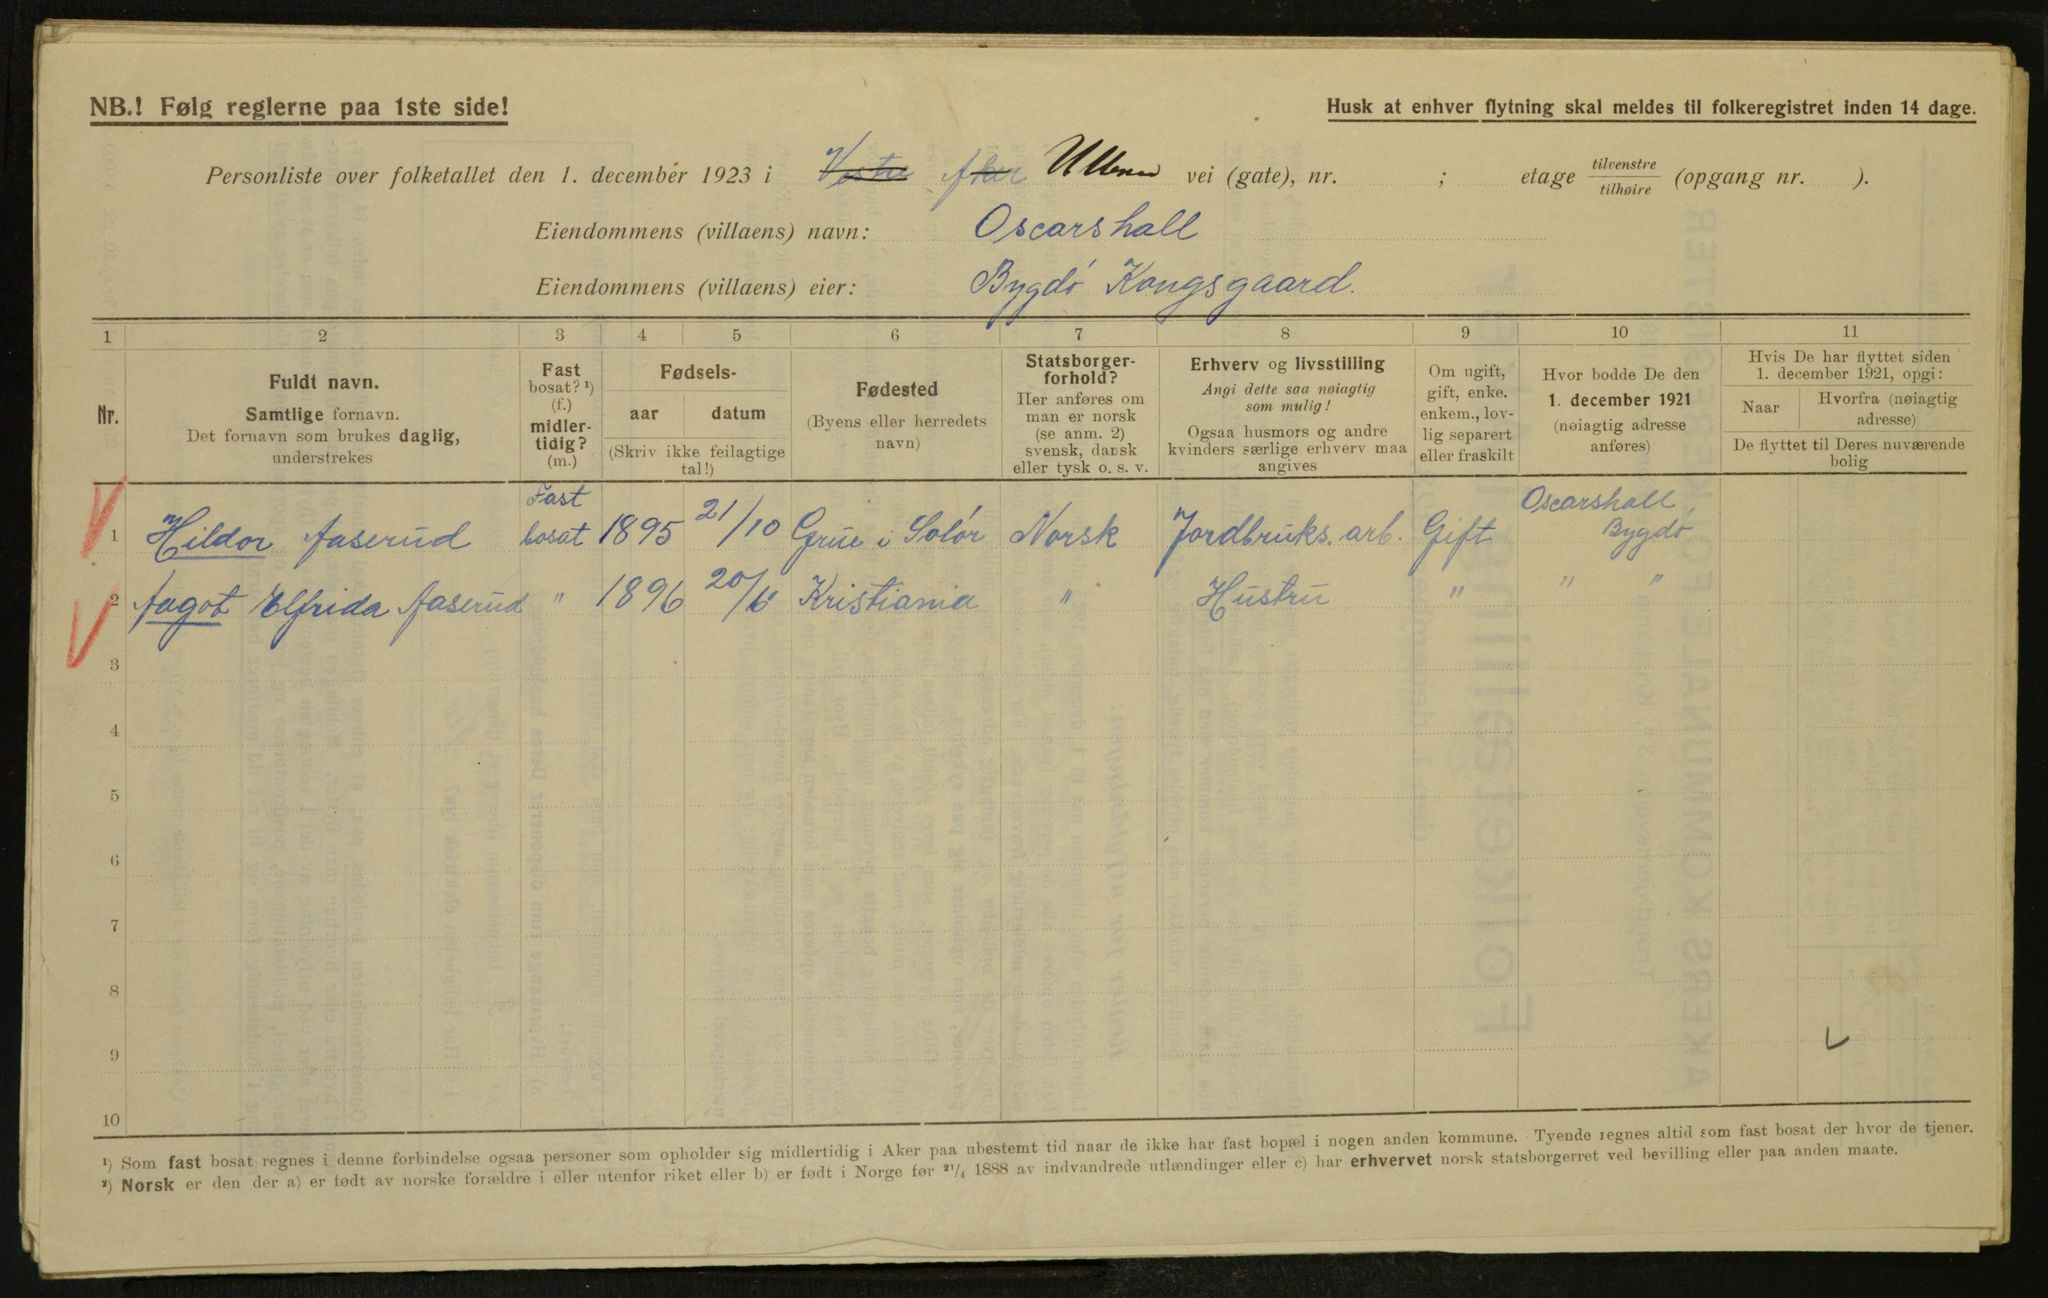 NB.! Følg reglerne paa 1ste side!
Husk at enhver flytning skal meldes til folkeregistret inden 14 dage.
Personliste over folketallet den 1. december 1923 i Vestre Aker Ullern vei (gate), nr. ; etage tilvenstre / tilhøire (opgang nr. ).
Eiendommens (villaens) navn: Oscarshall
Eiendommens (villaens) eier: Bygdö Kongsgaard.
1 2 3 4 5 6 7 8 9 10 11
Nr.
Fuldt navn.
Samtlige fornavn.
Det fornavn som brukes daglig,
understrekes
Fast
bosat? ¹)
(f.)
midler-
tidig?
(m.)
Fødsels-
aar datum
(Skriv ikke feilagtige
tal!)
Fødested
(Byens eller herredets
navn)
Statsborger-
forhold?
Her anføres om
man er norsk
(se anm. 2)
svensk, dansk
eller tysk o. s. v.
Erhverv og livsstilling
Angi dette saa nøiagtig
som mulig!
Ogsaa husmors og andre
kvinders særlige erhverv maa
angives
Om ugift,
gift, enke.
enkem., lov-
lig separert
eller fraskilt
Hvor bodde De den
1. december 1921
(nøiagtig adresse
anføres)
Hvis De har flyttet siden
1. december 1921, opgi:
Naar
Hvorfra (nøiagtig
adresse)
De flyttet til Deres nuværende
bolig
1 Hildor Aaserud Fast bosat 1895 21/10 Grue i Solör Norsk Jordbruks. arb. Gift Oscarshall, Bygdö
2 Aagot Elfrida Aaserud " 1896 20/6 Kristiania " Hustru " " "
3
4
5
6
7
8
9
10
¹) Som fast bosat regnes i denne forbindelse ogsaa personer som opholder sig midlertidig i Aker paa ubestemt tid naar de ikke har fast bopæl i nogen anden kommune. Tyende regnes altid som fast bosat der hvor de tjener.
²) Norsk er den der a) er født av norske forældre i eller utenfor riket eller b) er født i Norge før ²¹/₄ 1888 av indvandrede utlændinger eller c) har erhvervet norsk statsborgerret ved bevilling eller paa anden maate.